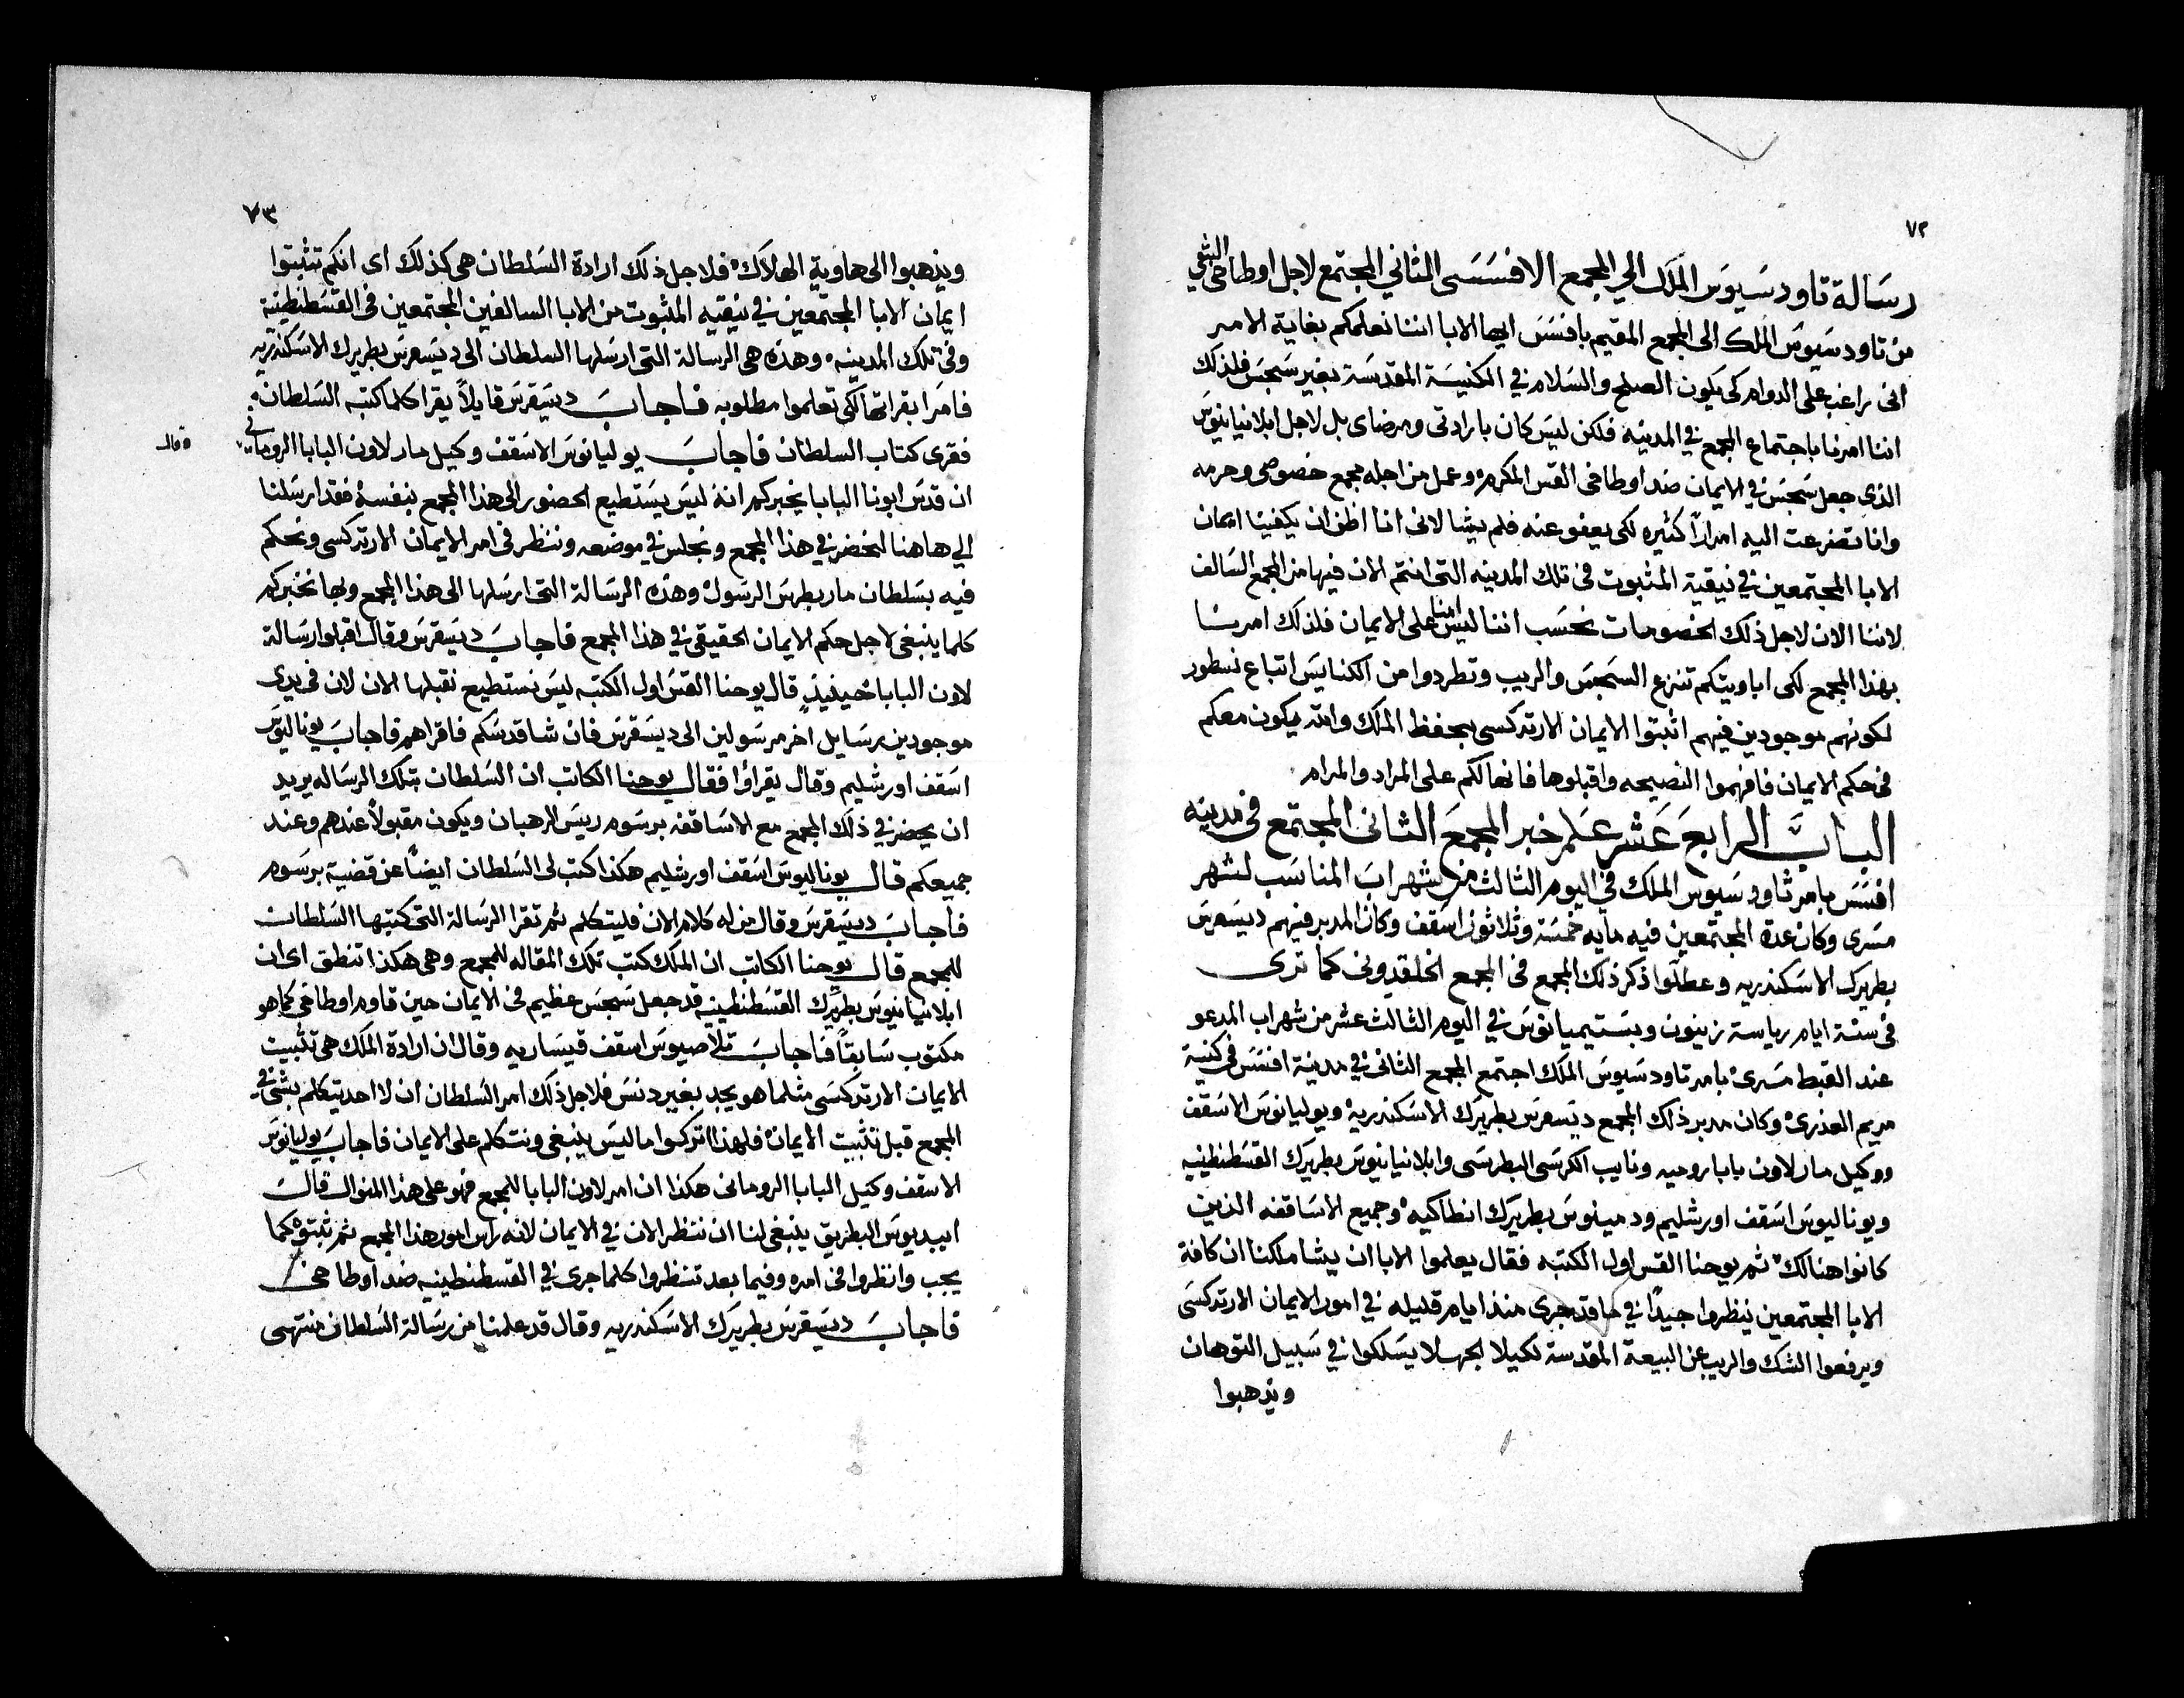 ٧٢
رسالة تاودسيوس الملك الي المجمع الافسسى الثاني المجتمع لاجل اوطاخى الشقي
من تاودسيوس الملك الى المجمع المقيم بافسس ايها الابا اننا نعلمكم بغاية الامر
انى راغب على الدوام كى يكون الصلح والسلام في الكنيسة المقدسة بغير سجس فلذلك
اننا امرنا باجتماع المجمع في المدينه فلكن ليس كان بارادتى ومرضاى بل لاجل ابلانيانيوس
الذى جعل سجس في الايمان ضد اوطاخى القس المكرم وعمل من اجله مجمع خصوصى وحرمه
وانا تضرعت اليه امراراً كثيره لكى يعفو عنه فلم يشا لانى انا اظن ان يكفينا ايمان
الابا المجتمعين في نيقية المثبوت فى تلك المدينه التى انتم الان فيها من المجمع السالف
لاننا الان لاجل ذلك الخصومات نحسب اننا ليس امنا على الايمان فلذلك امرنا
بهذا المجمع لكى ابا ويتكم تنزع السجس والريب وتطردوا من الكنايس اتباع نسطور
لكونهم موجودين فيهم اثبتوا الايمان الارتدكسى بحفظ الملك والله يكون معكم
فى حكم الايمان فافهموا النصيحه واقبلوها فانها لكم على المراد والمرام
الباب الرابع عشر علم خبر المجمع الثانى المجتمع فى مدينه
افسس بامر ثاودسيوس الملك في اليوم الثالث من شهر اب المناسب لشهر
مسرى وكان عدة المجتمعين فيه مايه خمسة وثلاثون اسقف وكان المدبر فيهم ديسقرس
بطريرك الاسكندريه وعطلوا ذكر ذلك المجمع فى المجمع الخلقدونى كما ترى
فى سنة ايام رياسة زينون وبستيميانوس في اليوم الثالث عشر من شهر اب المدعو
عند القبط مسرى بامر تاودسيوس الملك اجتمع المجمع الثانى في مدينة افسس فى كنيسة
مريم العذرى وكان مدبر ذلك المجمع ديسقرس بطريرك الاسكندرية ويوليانوس الاسقف
ووكيل مار لاون بابا روميه ونايب الكرسى البطرسى وابلانيانيوس بطريرك القسطنطينيه
ويوناليوس اسقف اورشليم ودمينوس بطريرك انطاكيه وجميع الاساقفه الذين
كانوا هنالك ثم يوحنا القس اول الكتبه فقال يعلموا الابا ان يشا ملكنا ان كافة
الابا المجتمعين ينظروا جيداً في ما قد جرى منذ ايام قليله في امور الايمان الارتدكسى
ويرفعوا الشك والريب عن البيعة المقدسة لكيلا الجهلا يسلكوا في سبيل التوهان
ويذهبوا
٧٣
ويذهبوا الى هاوية الهلاك فلاجل ذلك ارادة السلطان هى كذلك اى انكم تثبتوا
ايمان الابا المجتمعين في نيقيه المثبوت من الابا السالفين المجتمعين فى القسطنطينة
وفى تلك المدينه وهذه هى الرسالة التى ارسلها السلطان الى ديسقرس بطريرك الاسكندريه
فامر ا بقراتها لكى تعلموا مطلوبه فاجاب ديسقرس قايلاً يقرا كلما كتبه السلطان
فقرى كتاب السلطان فاجاب يوليانوس الاسقف وكيل مار لاون البابا الرومانى
وقال
ان قدس ابونا البابا يخبركم انه ليس يستطيع الحضور الى هذا المجمع بنفسه فقد ارسلنا
الي هاهنا لنحضر في هذا المجمع ونجلس في موضعه وننظر فى امر الايمان الارتدكسى ونحكم
فيه بسلطان مار بطرس الرسول وهذه الرسالة التى ارسلها الى هذا المجمع وبها نخبركم
كلما ينبغى لاجل حكم الايمان الحقيقى في هذا المجمع فاجاب ديسقرس وقال اقبلوا رسالة
لاون البابا حينيذٍ قال يوحنا القس اول الكتبه ليس نستطيع نقبلها الان لان فى يدى
موجودين رسايل اخر مرسولين الى ديسقرس فان شا قدسكم فاقراهم فاجاب يوناليوس
اسقف اورشليم وقال يقراوا فقال يوحنا الكاتب ان السلطان بتلك الرساله يريد
ان يحضر في ذلك المجمع مع الاساقفه برسوم رييس الرهبان ويكون مقبولاً عندهم وعند
جميعكم قال يوناليوس اسقف اورشليم هكذا كتب لى السلطان ايضاً عن قضية برسوم
فاجاب ديسقرس وقال من له كلام الان فليتكلم ثم تقرا الرسالة التى كتبها السلطان
للمجمع قال يوحنا الكاتب ان الملك كتب تلك المقاله للمجمع وهى هكذا تنطق اى ان
ابلانيانيوس بطريرك القسطنطينيه قد جعل سجس عظيم فى الايمان حين قاوم اوطاخى كما هو
مكتوب سابقاً فاجاب تلاصيوس اسقف قيساريه وقال ان ارادة الملك هى تثبيت
الايمان الارتدكسى مثلما هو يجب بغير دنس فلاجل ذلك امر السلطان ان لا احد يتكلم بشى في
المجمع قبل تثبيت الايمان فلهذا اتركوا ما ليس ينبغى ونتكلم على الايمان فاجاب يوليانوس
الاسقف وكيل البابا الرومانى هكذا ان امر لاون البابا للمجمع فهو على هذا المنوال قال
ابيديوس البطريق ينبغى لنا ان ننظر الان في الايمان لانه راس امور هذا المجمع ثم ثبتوه كما
يجب وانظروا فى امره وفيما بعد تنظروا كلما جرى في القسطنطينيه ضد اوطاخى
فاجاب ديسقرس بطريرك الاسكندريه وقال قد علمنا من رسالة السلطان منتهى